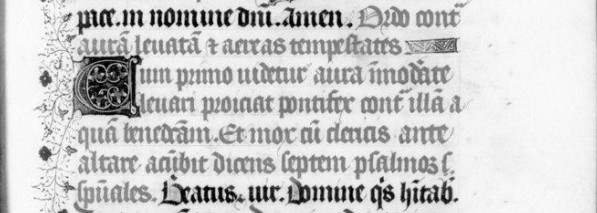 pace. in nomine dn̄i. Amen. Ordo cont᷑
aurā leuatā ⁊ aereas tempestates
Cum primo uidetur aura īmod̄ate
leuari proiciat pontifex cont᷑ illā a
quā bened̄cām. Et mox cū clericis ante
altare accūbit dicens septem psalmos s
sp̄uales. Beatus. uir. Domine q̄s h̄itab᷑.